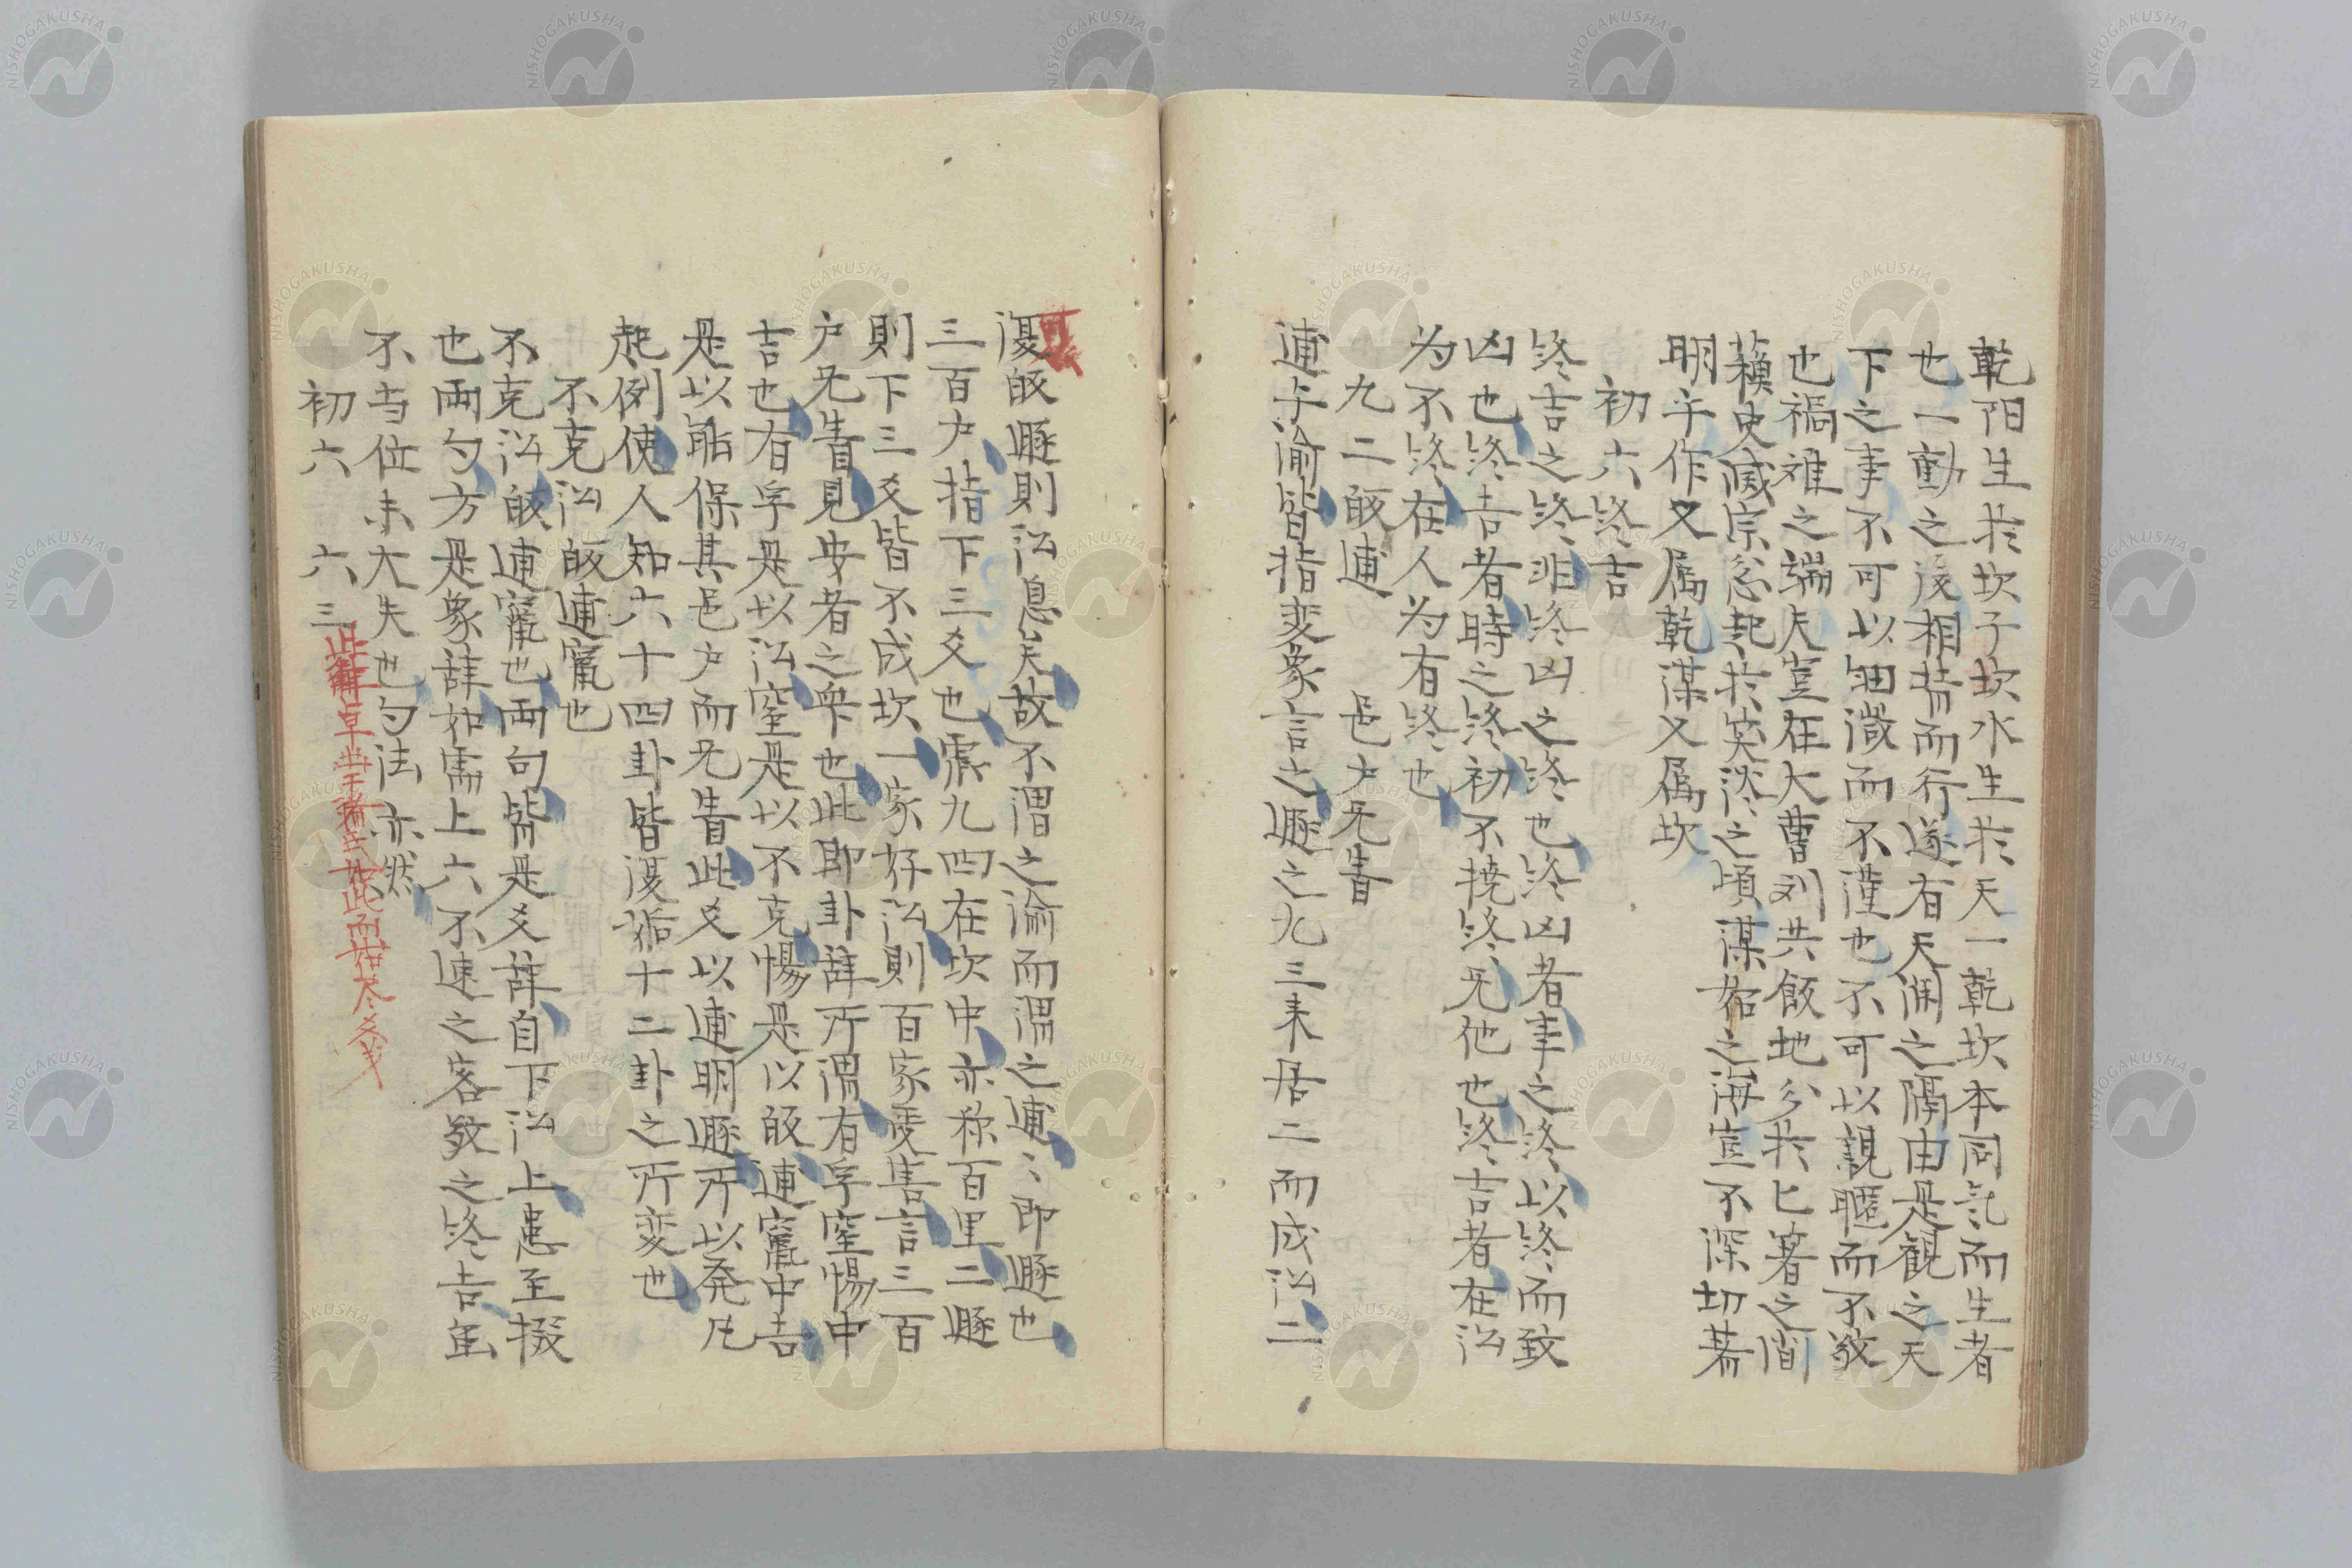 乾阳生於坎子坎水生於天一乾坎本同气而生者
也一動之後相背而行遂有天渊之隔由是観之天
下之事不可以細微而不謹也不可以親暱而不敬
也禍难之端夫豈在大曹刘共飯地分於匕箸之間
蘓史滅宗忿起於笑淡之頃謀始之誨豈不深切著
明乎作又属乾謀又属坎
初六終吉
終吉之終非終凶之終也終凶者事之終以終而致
凶也終吉者時之終初不撓終无他也終吉者在訟
为不終在人为有終也
九二皈逋 邑户无眚
逋与渝皆指变象言之遯之九三来居二而成訟二
復皈遯則訟息矣故不謂之渝而謂之逋〻即遯也
三百户指下三爻也震九四在坎中亦称百里二遯
則下三爻皆不成坎一家好訟則百家受害言三百
户无眚見安者之衆也此即卦辞所謂有孚窒惕中
吉也有孚是以訟窒是以不克惕是以皈逋竄中吉
是以能保其邑户而无眚此爻以逋明遯所以発凡
起例使人知六十四卦皆復姤十二卦之所变也
不克訟皈逋竄也
不克訟皈逋竄也兩句皆是爻辞自下訟上患至掇
也兩句方是象辞如需上六不速之客敬之終吉虽
不当位未大失也句法亦然
初六 六三